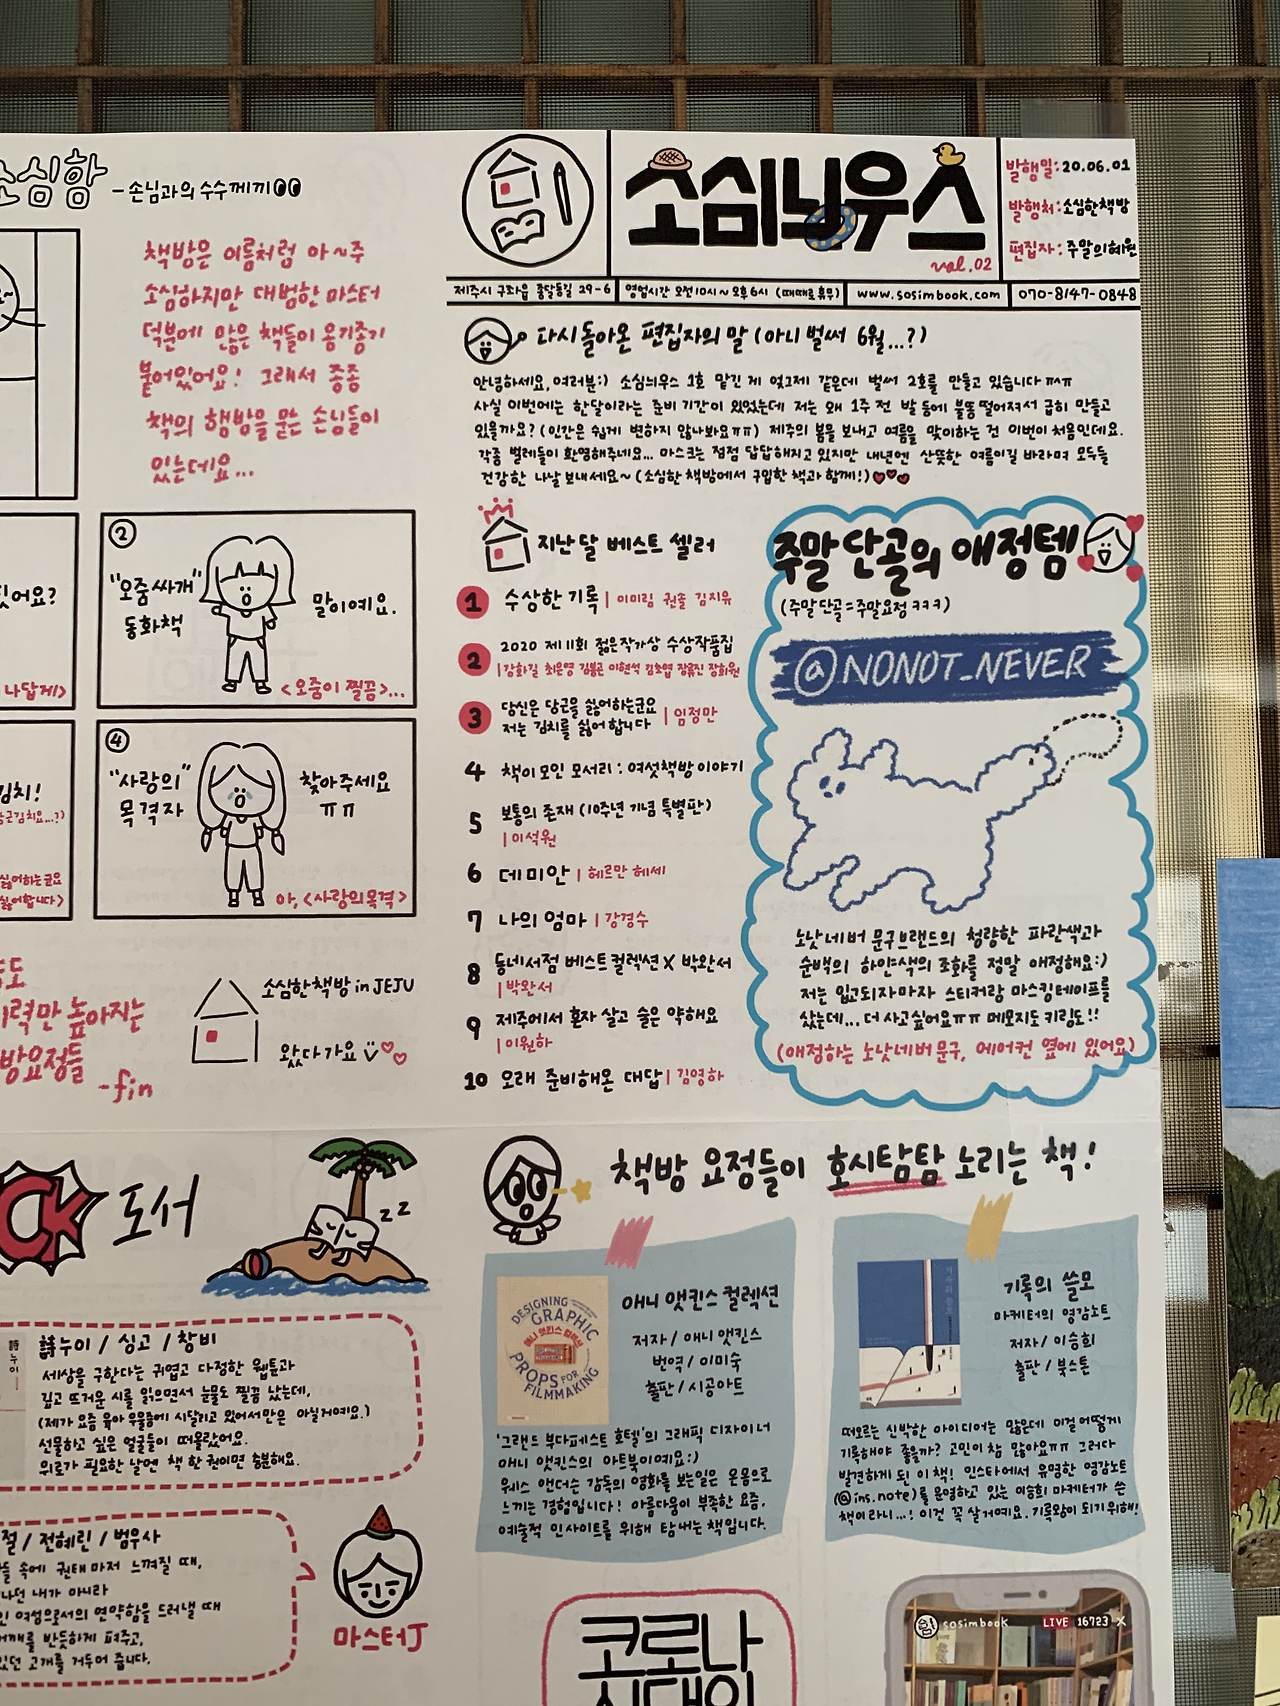 소심항 - 손님과의 수수께끼
책방은 이름처럼 아~주
소심하지만 대범한 마스터
덕분에 많은 책들이 옹기종기
붙어있어요! 그래서 종종
책의 행방을 묻는 손님들이
있는데요...
②
"오줌싸개"
동화책
말이예요.
<오줌이 찔끔>...
나답게>
④
"사랑의"
목격자
찾아주세요
ㅠㅠ
아, <사랑의 목격>
김치!
싫어하는군요
싫어합니다>
력만 높아지는
방요정들
-fin
소심한책방 in JEJU
왔다가요
소심늬우스
vol.02
발행일: 20.06.01
발행처: 소심한책방
편집자: 주말의혜원
제주시 구좌읍 종달동길 29-6
영업시간 오전10시~오후6시 (때때로 휴무)
www.sosimbook.com
070-8147-0848
다시 돌아온 편집자의 말 (아니 벌써 6월...?)
안녕하세요, 여러분:) 소심늬우스 1호 맡긴 게 엊그제 같은데 벌써 2호를 만들고 있습니다 ㅠㅅㅠ
사실 이번에는 한달이라는 준비 기간이 있었는데 저는 왜 1주 전 발등에 불똥 떨어져서 급히 만들고
있을까요? (인간은 쉽게 변하지 않나봐요ㅠㅠ) 제주의 봄을 보내고 여름을 맞이하는 건 이번이 처음인데요.
각종 벌레들이 환영해주네요... 마스크는 점점 답답해지고 있지만 내년엔 산뜻한 여름이길 바라며 모두들
건강한 나날 보내세요~ (소심한 책방에서 구입한 책과 함께!)
지난달 베스트 셀러
1 수상한 기록 | 이미림 권솔 김지유
2 2020 제11회 젊은작가상 수상작품집
| 강화길 최은영 김봉곤 이현석 김초엽 장류진 장희원
3 당신은 당근을 싫어하는군요
저는 김치를 싫어합니다 | 임정만
4 책이 모인 모서리 : 여섯책방 이야기
5 보통의 존재 (10주년 기념 특별판)
| 이석원
6 데미안 | 헤르만 헤세
7 나의 엄마 | 강경수
8 동네서점 베스트 컬렉션 X 박완서
| 박완서
9 제주에서 혼자 살고 술은 약해요
| 이원하
10 오래 준비해온 대답 | 김영하
주말단골의 애정템
(주말단골=주말요정 ㅋㅋㅋ)
@NONOT_NEVER
노낫네버 문구브랜드의 청량한 파란색과
순백의 하얀색의 조화를 정말 애정해요:)
저는 입고되자마자 스티커랑 마스킹테이프를
샀는데... 더 사고싶어요ㅠㅠ 메모지도 키링도!!
(애정하는 노낫네버 문구, 에어컨 옆에 있어요)
CK 도서
zz
詩누이 / 싱고 / 창비
세상을 구한다는 귀엽고 다정한 웹툰과
깊고 뜨거운 시를 읽으면서 눈물도 찔끔 났는데,
(제가 요즘 육아 우울증에 시달리고 있어서만은 아닐거예요.)
선물하고 싶은 얼굴들이 떠올랐어요.
위로가 필요한 날엔 책 한 권이면 충분해요.
/ 전혜린 / 범우사
속에 권태마저 느껴질 때,
나던 내가 아니라
여성으로서의 연약함을 드러낼 때
어깨를 반듯하게 펴주고,
있던 고개를 거두어 줍니다.
마스터J
책방 요정들이 호시탐탐 노리는 책!
DESIGNING
GRAPHIC
애니 앳킨스 컬렉션
PROPS FOR
FILMMAKING
애니 앳킨스 컬렉션
저자 / 애니 앳킨스
번역 / 이미숙
출판 / 시공아트
'그랜드 부다페스트 호텔'의 그래픽 디자이너
애니 앳킨스의 아트북이예요:)
웨스 앤더슨 감독의 영화를 보는일은 온몸으로
느끼는 경험입니다! 아름다움이 부족한 요즘,
예술적 인사이트를 위해 탐내는 책입니다.
기록의 쓸모
마케터의 영감노트
저자 / 이승희
출판 / 북스톤
떠오르는 신박한 아이디어는 많은데 이걸 어떻게
기록해야 좋을까? 고민이 참 많아요ㅠㅠ 그러다
발견하게 된 이 책! 인스타에서 유명한 영감노트
(@ins.note)를 운영하고 있는 이승희 마케터가 쓴
책이라니...! 이건 꼭 살거예요. 기록왕이 되기위해!
코로나
시대의
sosimbook LIVE 16723 X